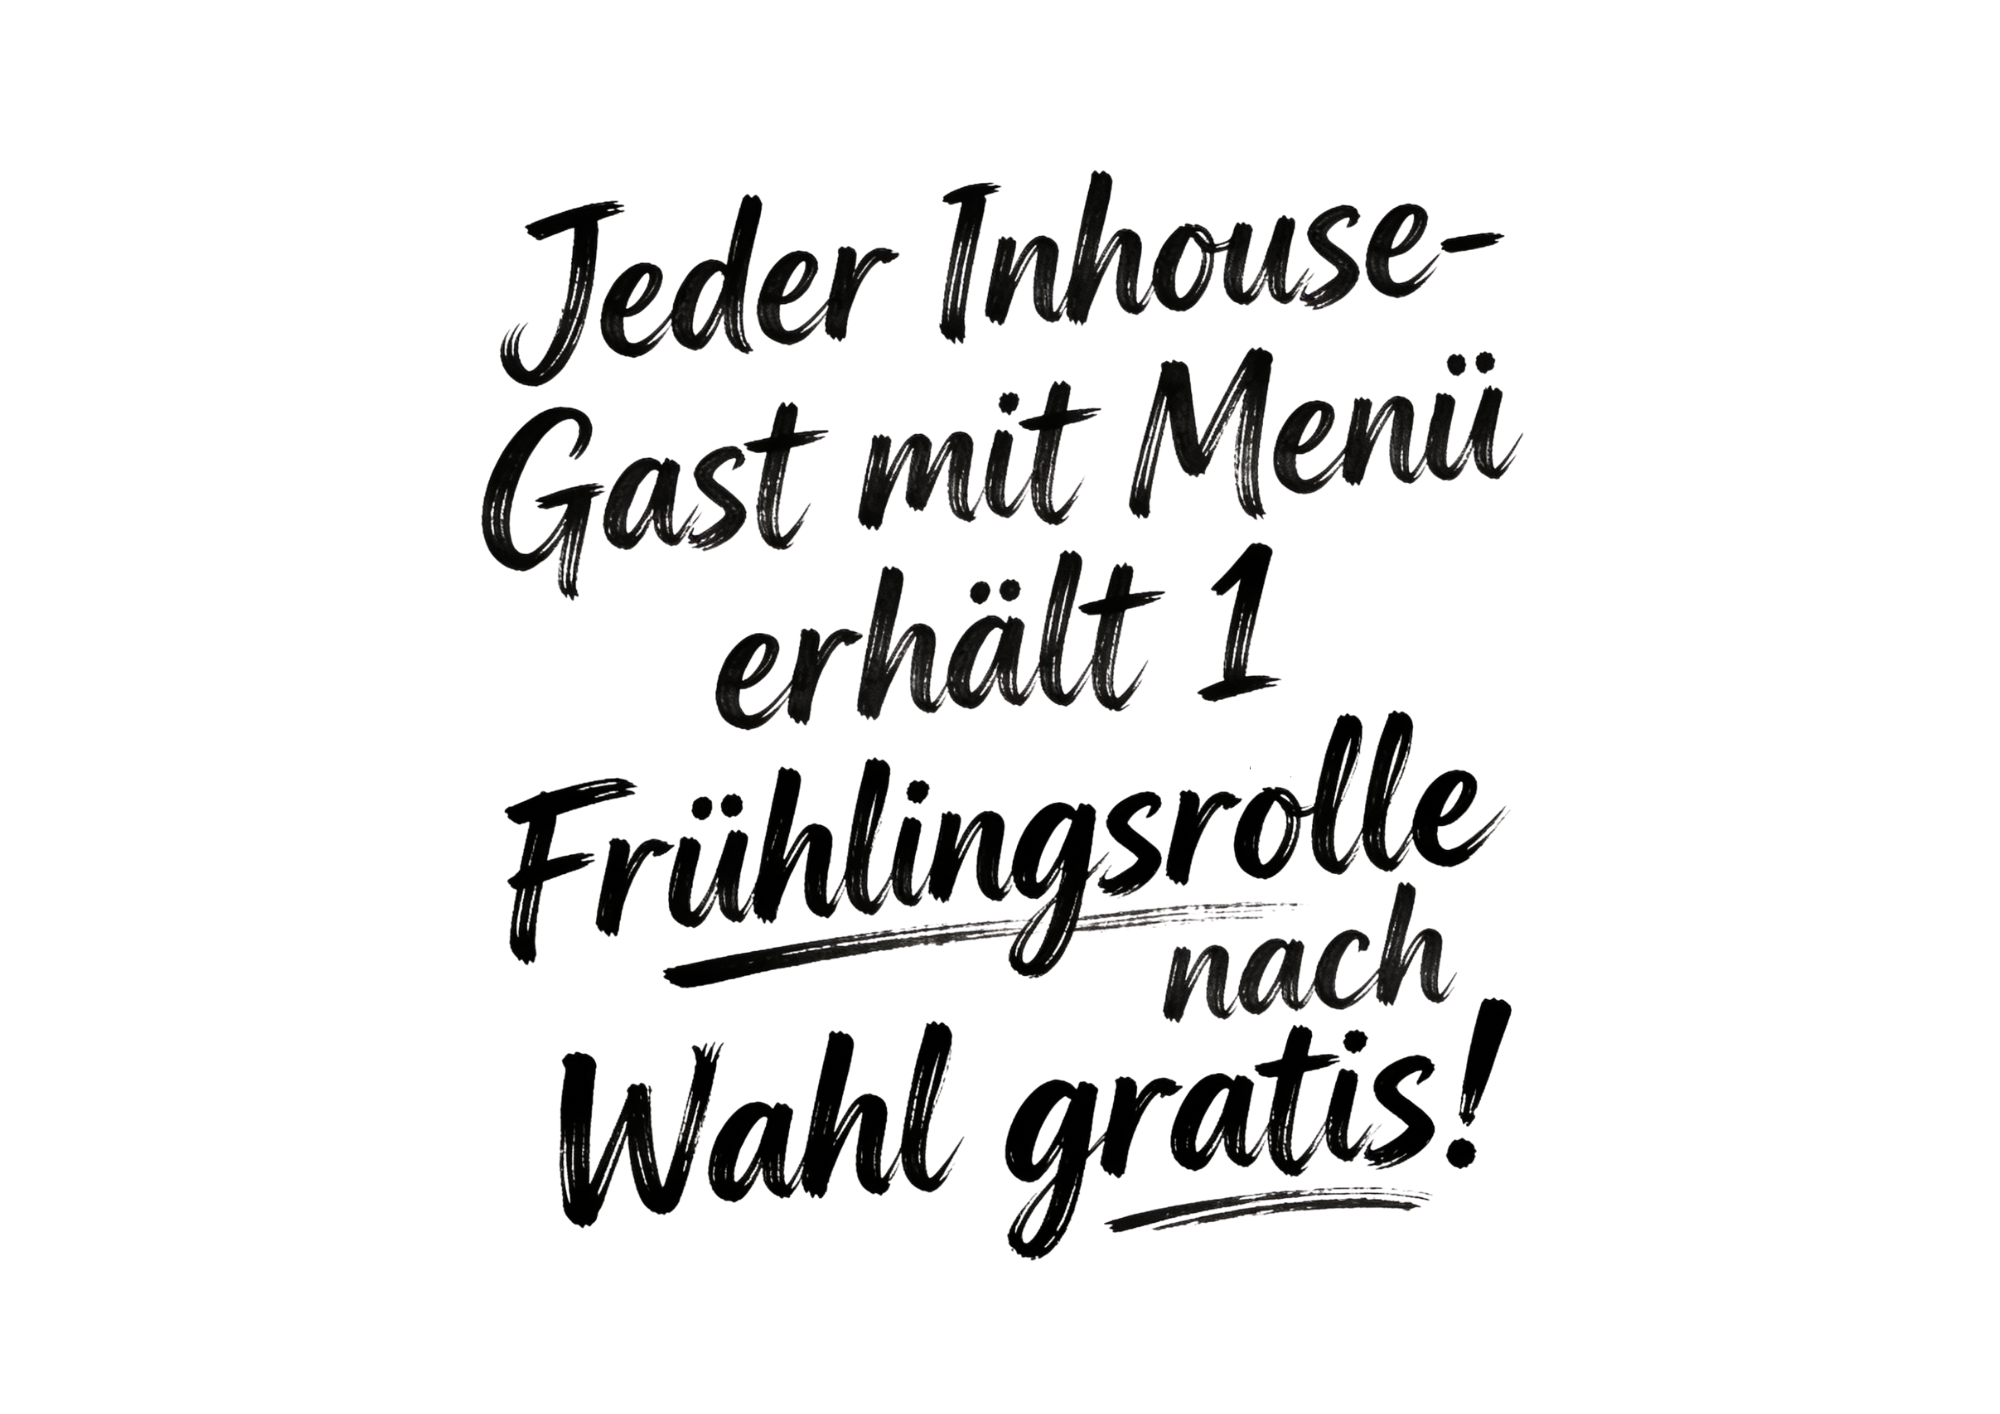 Jeder Inhouse-
Gast mit Menü
erhält 1
Frühlingsrolle
nach
Wahl gratis!